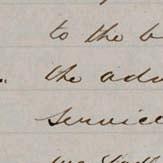 to the b
the adv
service